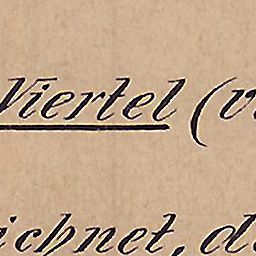 Viertel (v
ichnet, d